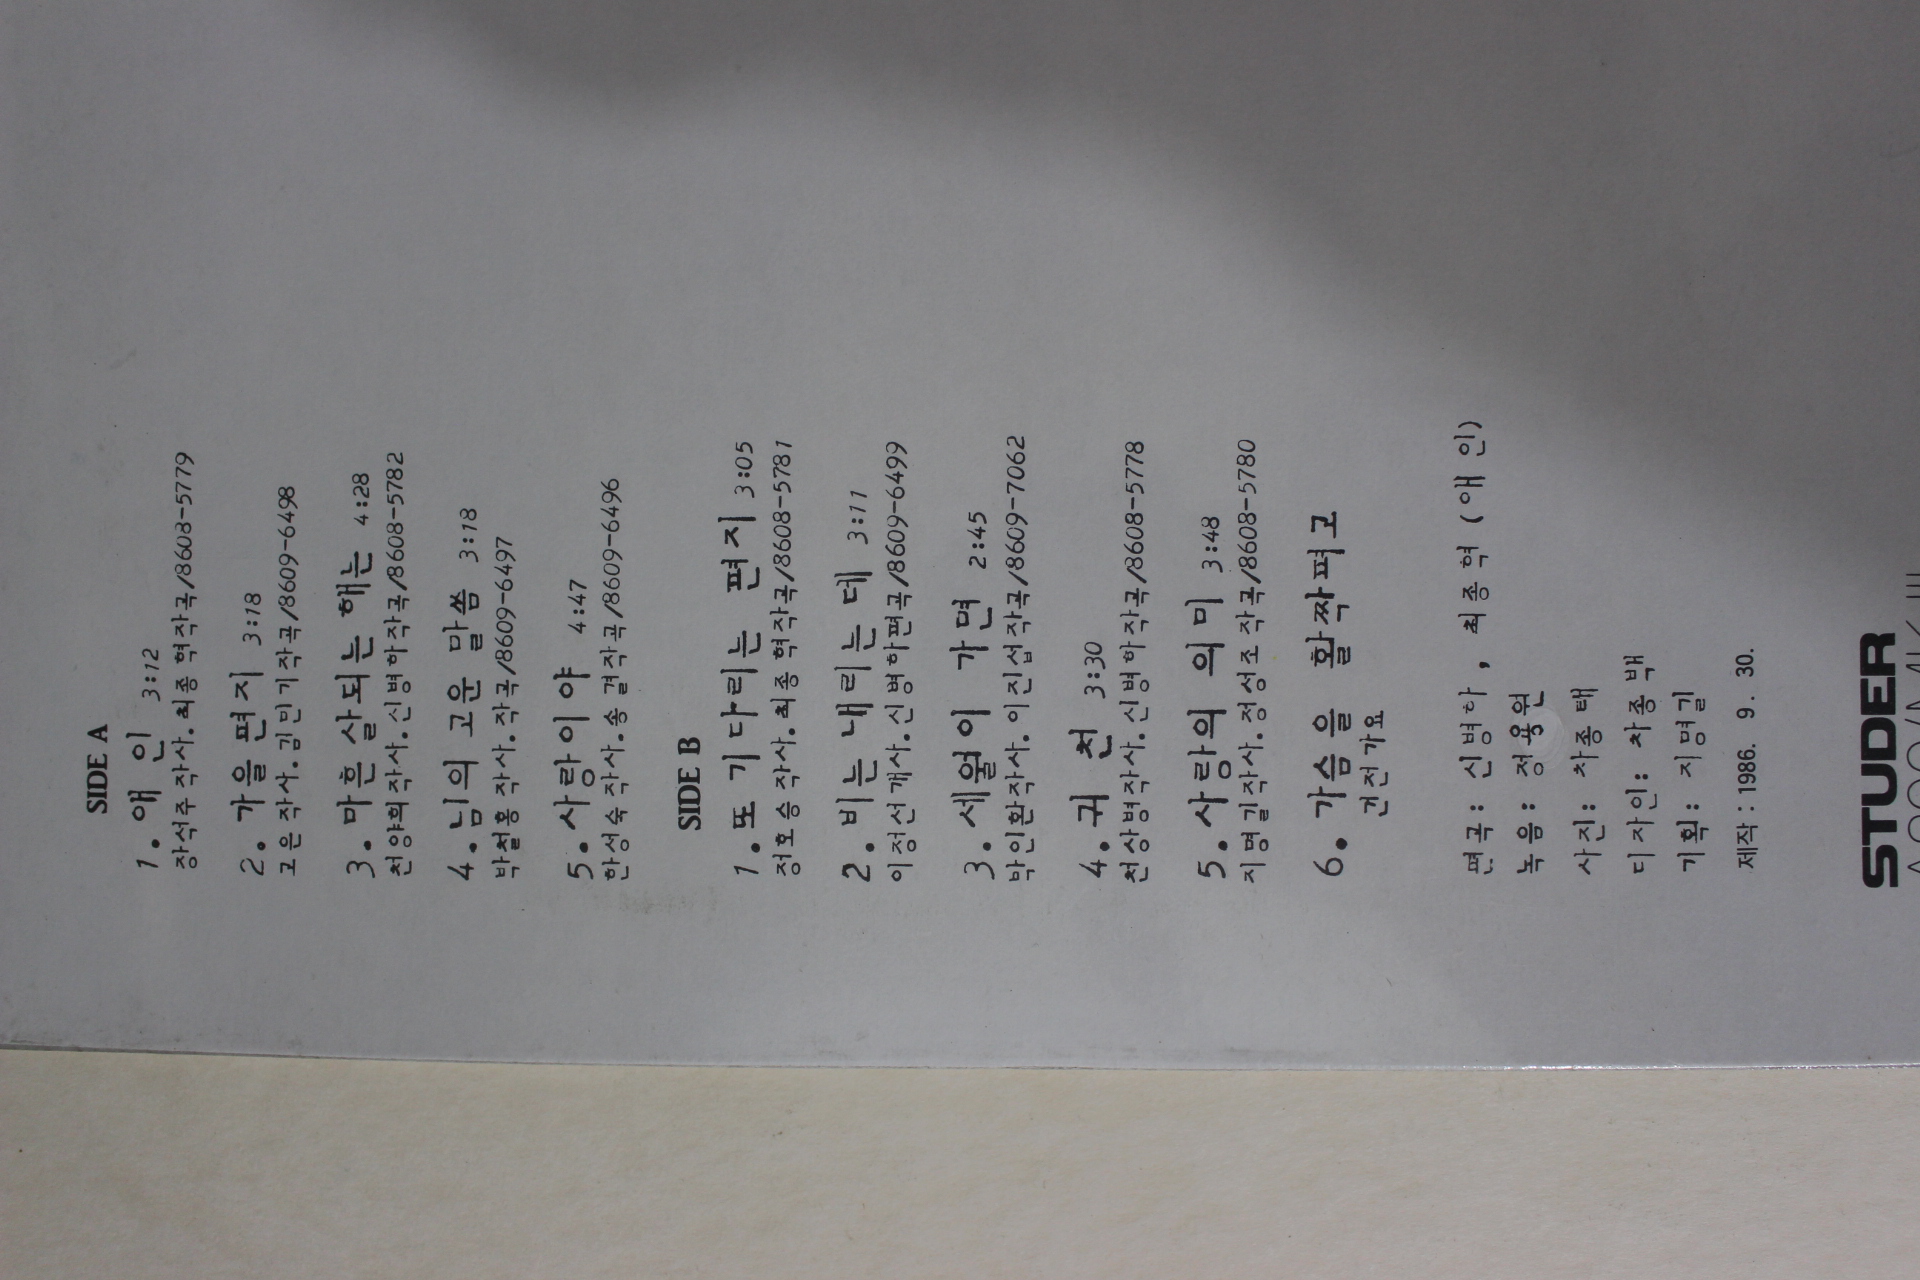 SIDE A
1. 애인 3:12
장석주 작사. 최종혁작곡/8608-5779
2. 가을 편지 3:18
고은 작사. 김민기작곡/8609-6498
3. 마흔 살되는 해는 4:28
천양희작사. 신병하작곡/8608-5782
4. 님의 고운 말씀 3:18
박철홍 작사. 작곡/8609-6497
5. 사랑이야 4:47
한성숙 작사. 송 결작곡/8609-6496
SIDE B
1. 또 기다리는 편지 3:05
정호승작사. 최종혁작곡/8608-5781
2. 비는 내리는데 3:11
이정선개사. 신병하편곡/8609-6499
3. 세월이 가면 2:45
박인환작사. 이진섭작곡/8609-7062
4. 귀천 3:30
천상병작사. 신병하작곡/8608-5778
5. 사랑의 의미 3:48
지명길작사. 정성조작곡/8608-5780
6. 가슴을 활짝펴고
건전가요
편곡: 신병하, 최종혁 (애인)
녹음: 정용원
사진: 차종태
디자인: 차종백
기획: 지명길
제작 : 1986. 9. 30.
STUDER